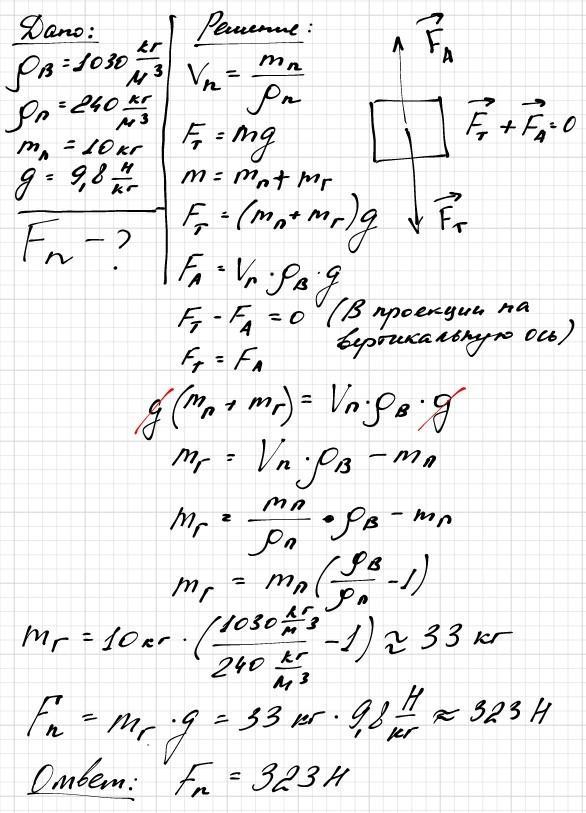 Дано:
ρв = 1030 кг/м³
ρп = 240 кг/м³
mп = 10 кг
g = 9,8 Н/кг
Fп - ?
Решение:
Vп = mп/ρп
Fт = mg
m = mп + mг
Fт = (mп + mг)g
FА = Vп · ρв · g
Fт - FА = 0 (В проекции на
вертикальную ось)
Fт = FА
FА
Fт + FА = 0
Fт
g(mп + mг) = Vп · ρв · g
mг = Vп · ρв - mп
mг = mп/ρп · ρв - mп
mг = mп(ρв/ρп - 1)
mг = 10 кг · (1030 кг/м³ / 240 кг/м³ - 1) ≈ 33 кг
Fп = mг · g = 33 кг · 9,8 Н/кг ≈ 323 Н
Ответ: Fп = 323 Н